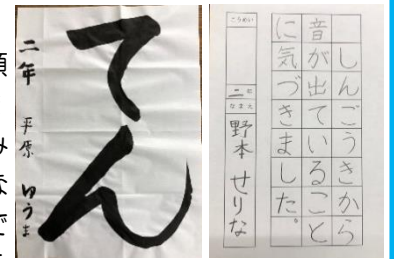 てん
二年 平原 ゆうま
しんごうきから
音が出ていること
に気づきました。
こうめい
二
なまえ
野本 せりな